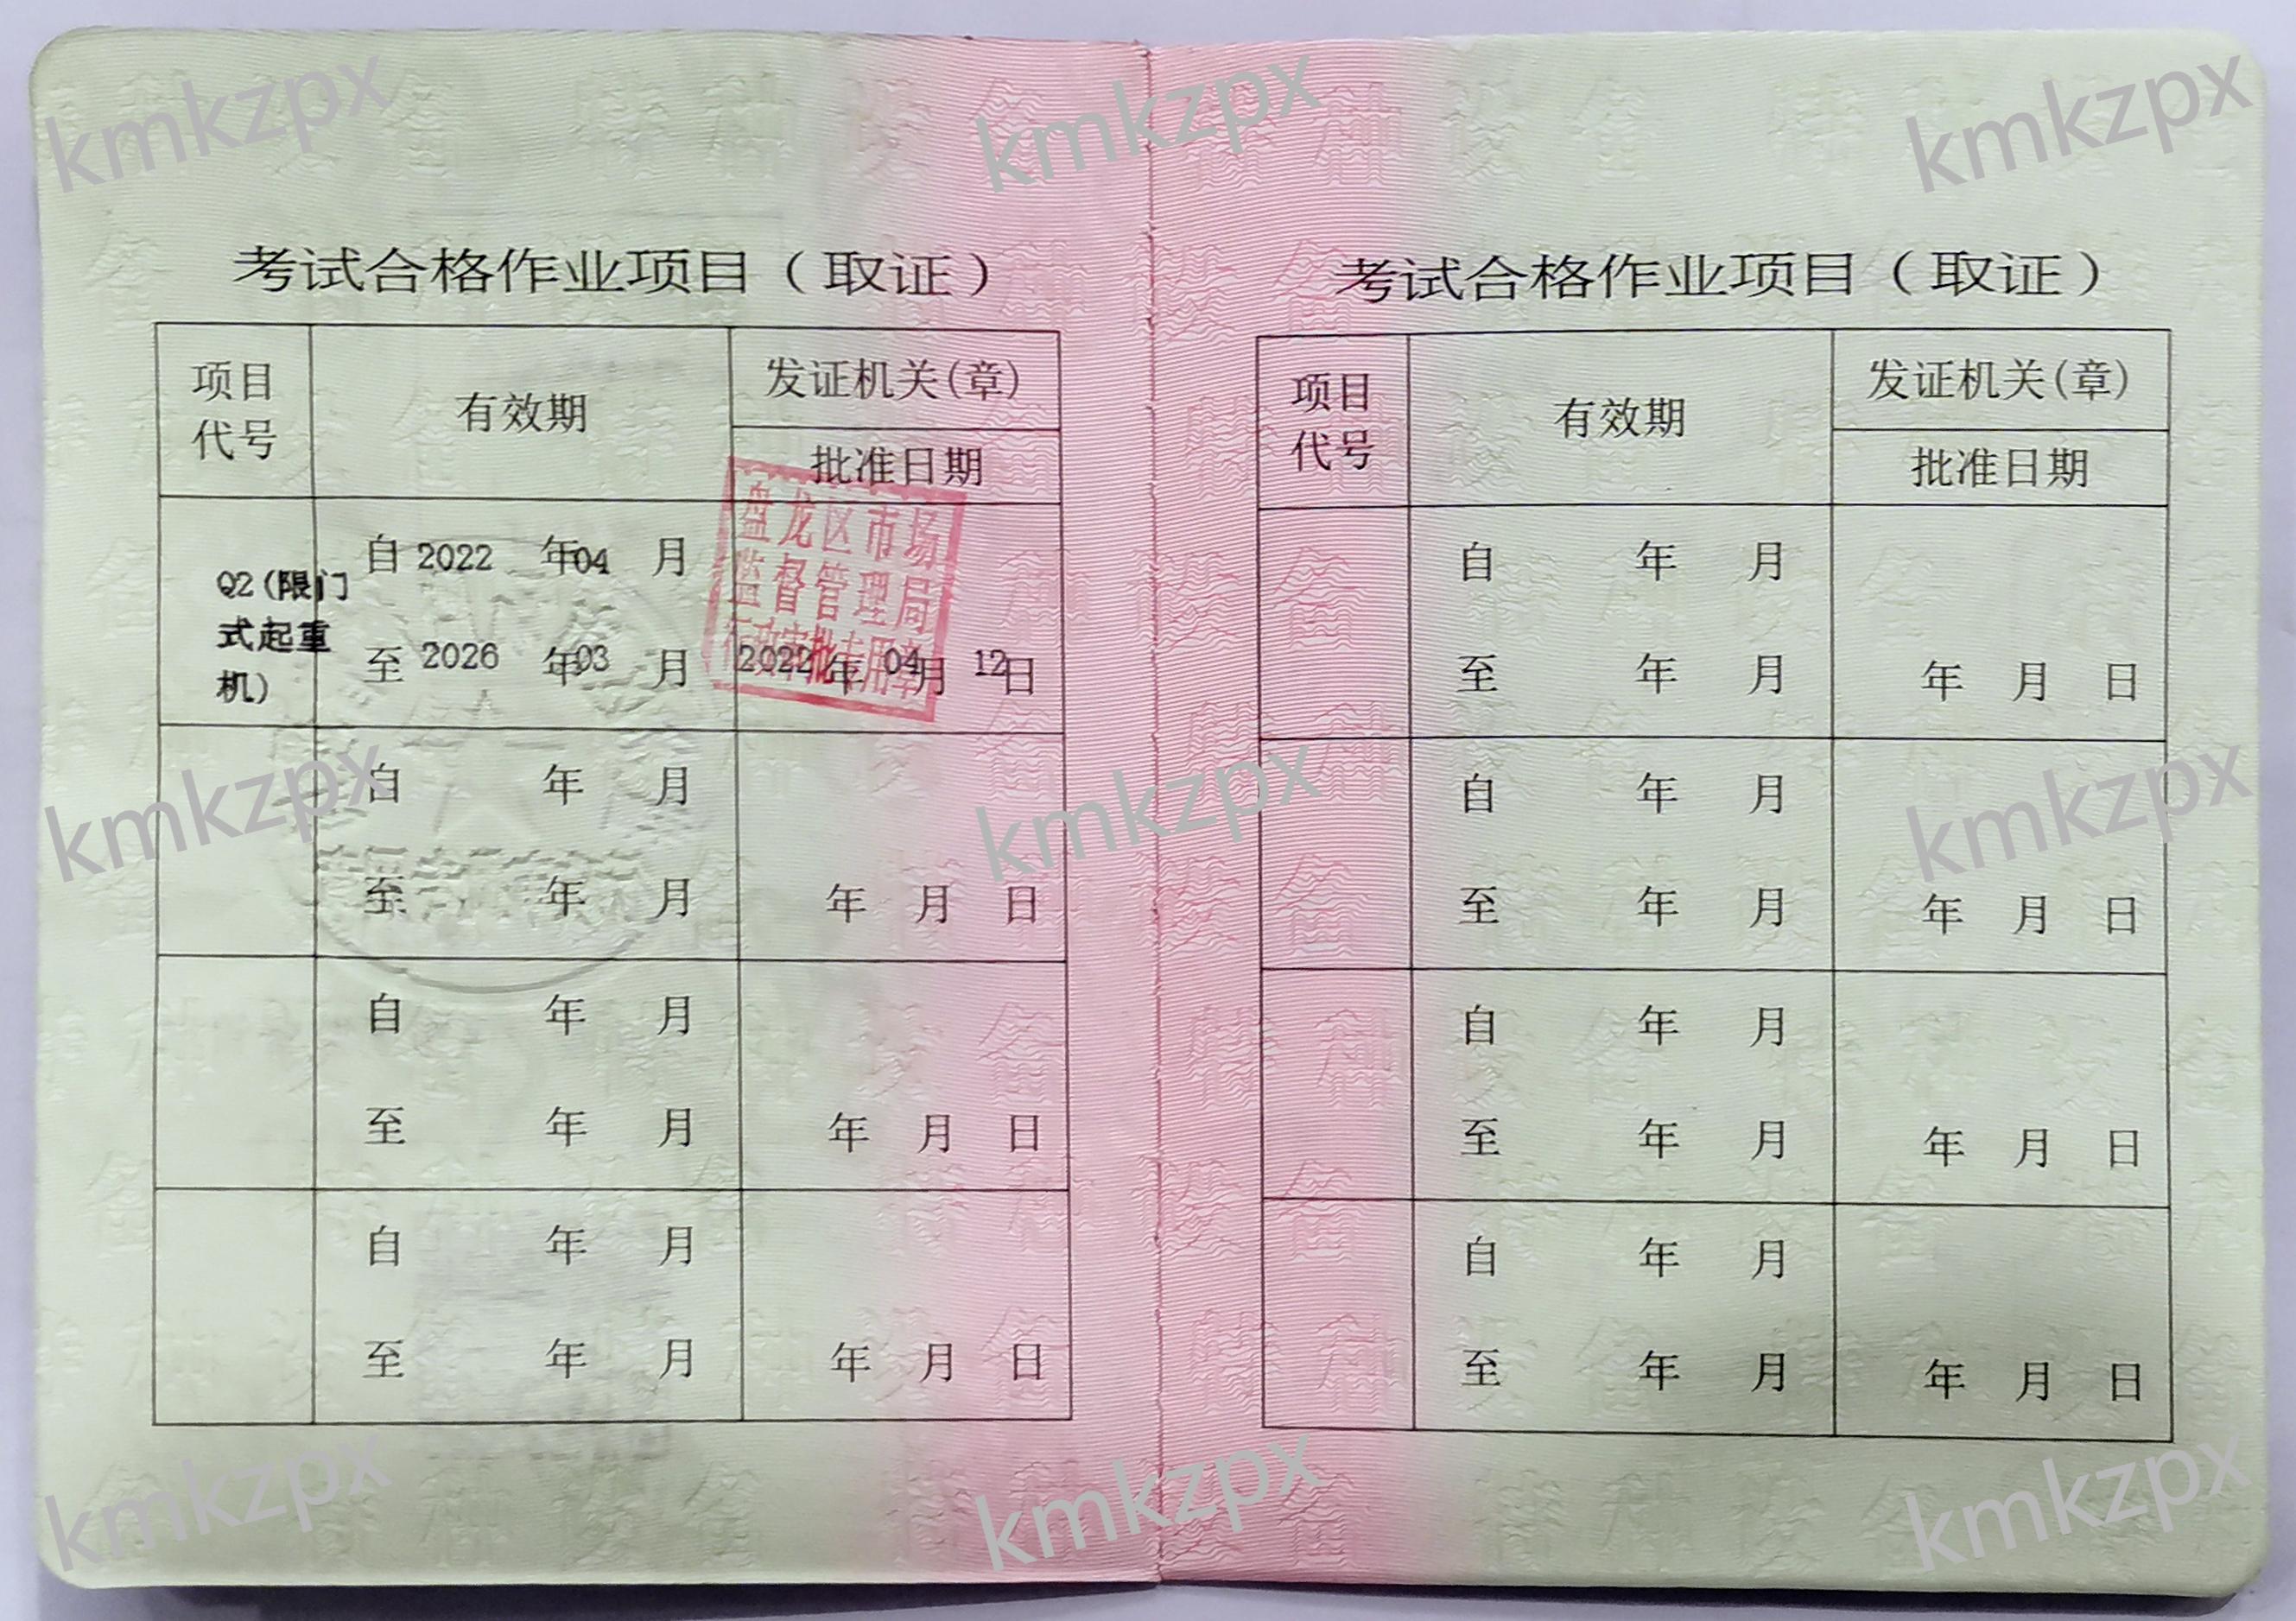 kmkzpx kmkzpx kmkzpx
考试合格作业项目（取证）
项目
代号
有效期
发证机关(章)
批准日期
盘龙区市场
监督管理局
行政审批专用章
Q2(限门
式起重
机)
自 2022 年 04 月
至 2026 年 03 月
2022 年 04 月 12 日
自 年 月
至 年 月
年 月 日
自 年 月
至 年 月
年 月 日
自 年 月
至 年 月
年 月 日
考试合格作业项目（取证）
项目
代号
有效期
发证机关(章)
批准日期
自 年 月
至 年 月
年 月 日
自 年 月
至 年 月
年 月 日
自 年 月
至 年 月
年 月 日
自 年 月
至 年 月
年 月 日
kmkzpx kmkzpx kmkzpx
kmkzpx kmkzpx kmkzpx